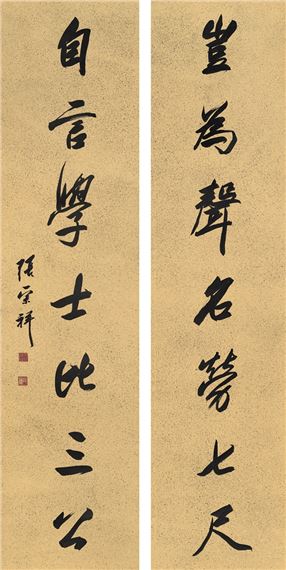 豈為聲名勞七尺
自言學士比三公
張宗祥